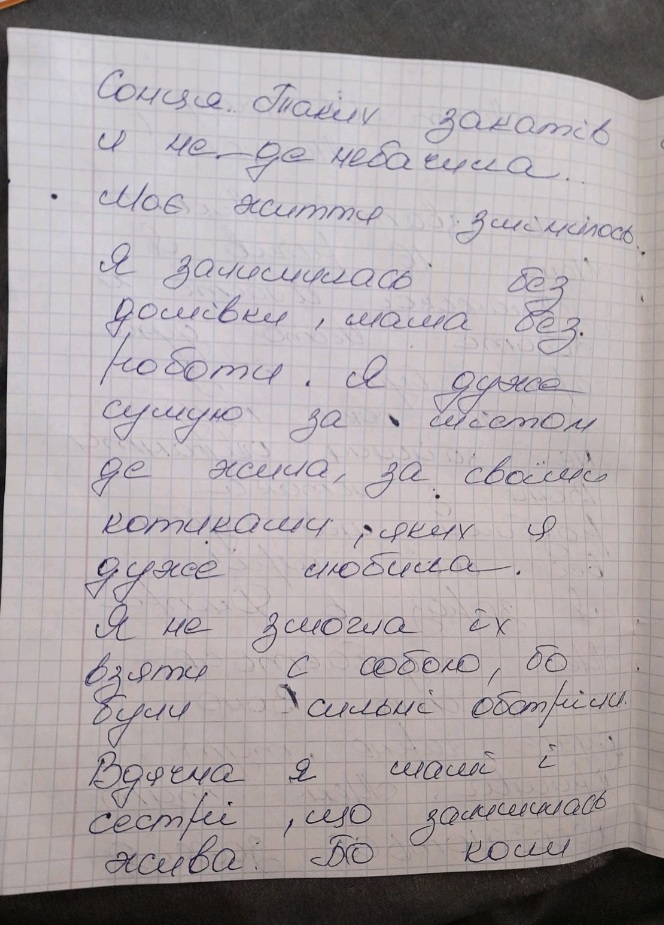 Сонця. Таких закатів
я не-де небачила..
Моє життя змінилось.
Я залишилась без
домівки, мама без
роботи. Я дуже
сумую за містом
де жила, за своїми
котиками, яких я
дуже любила.
Я не змогла їх
взяти с собою, бо
були сильні обстріли.
Вдячна я мамі і
сестрі, що залишилась
жива. Бо коли